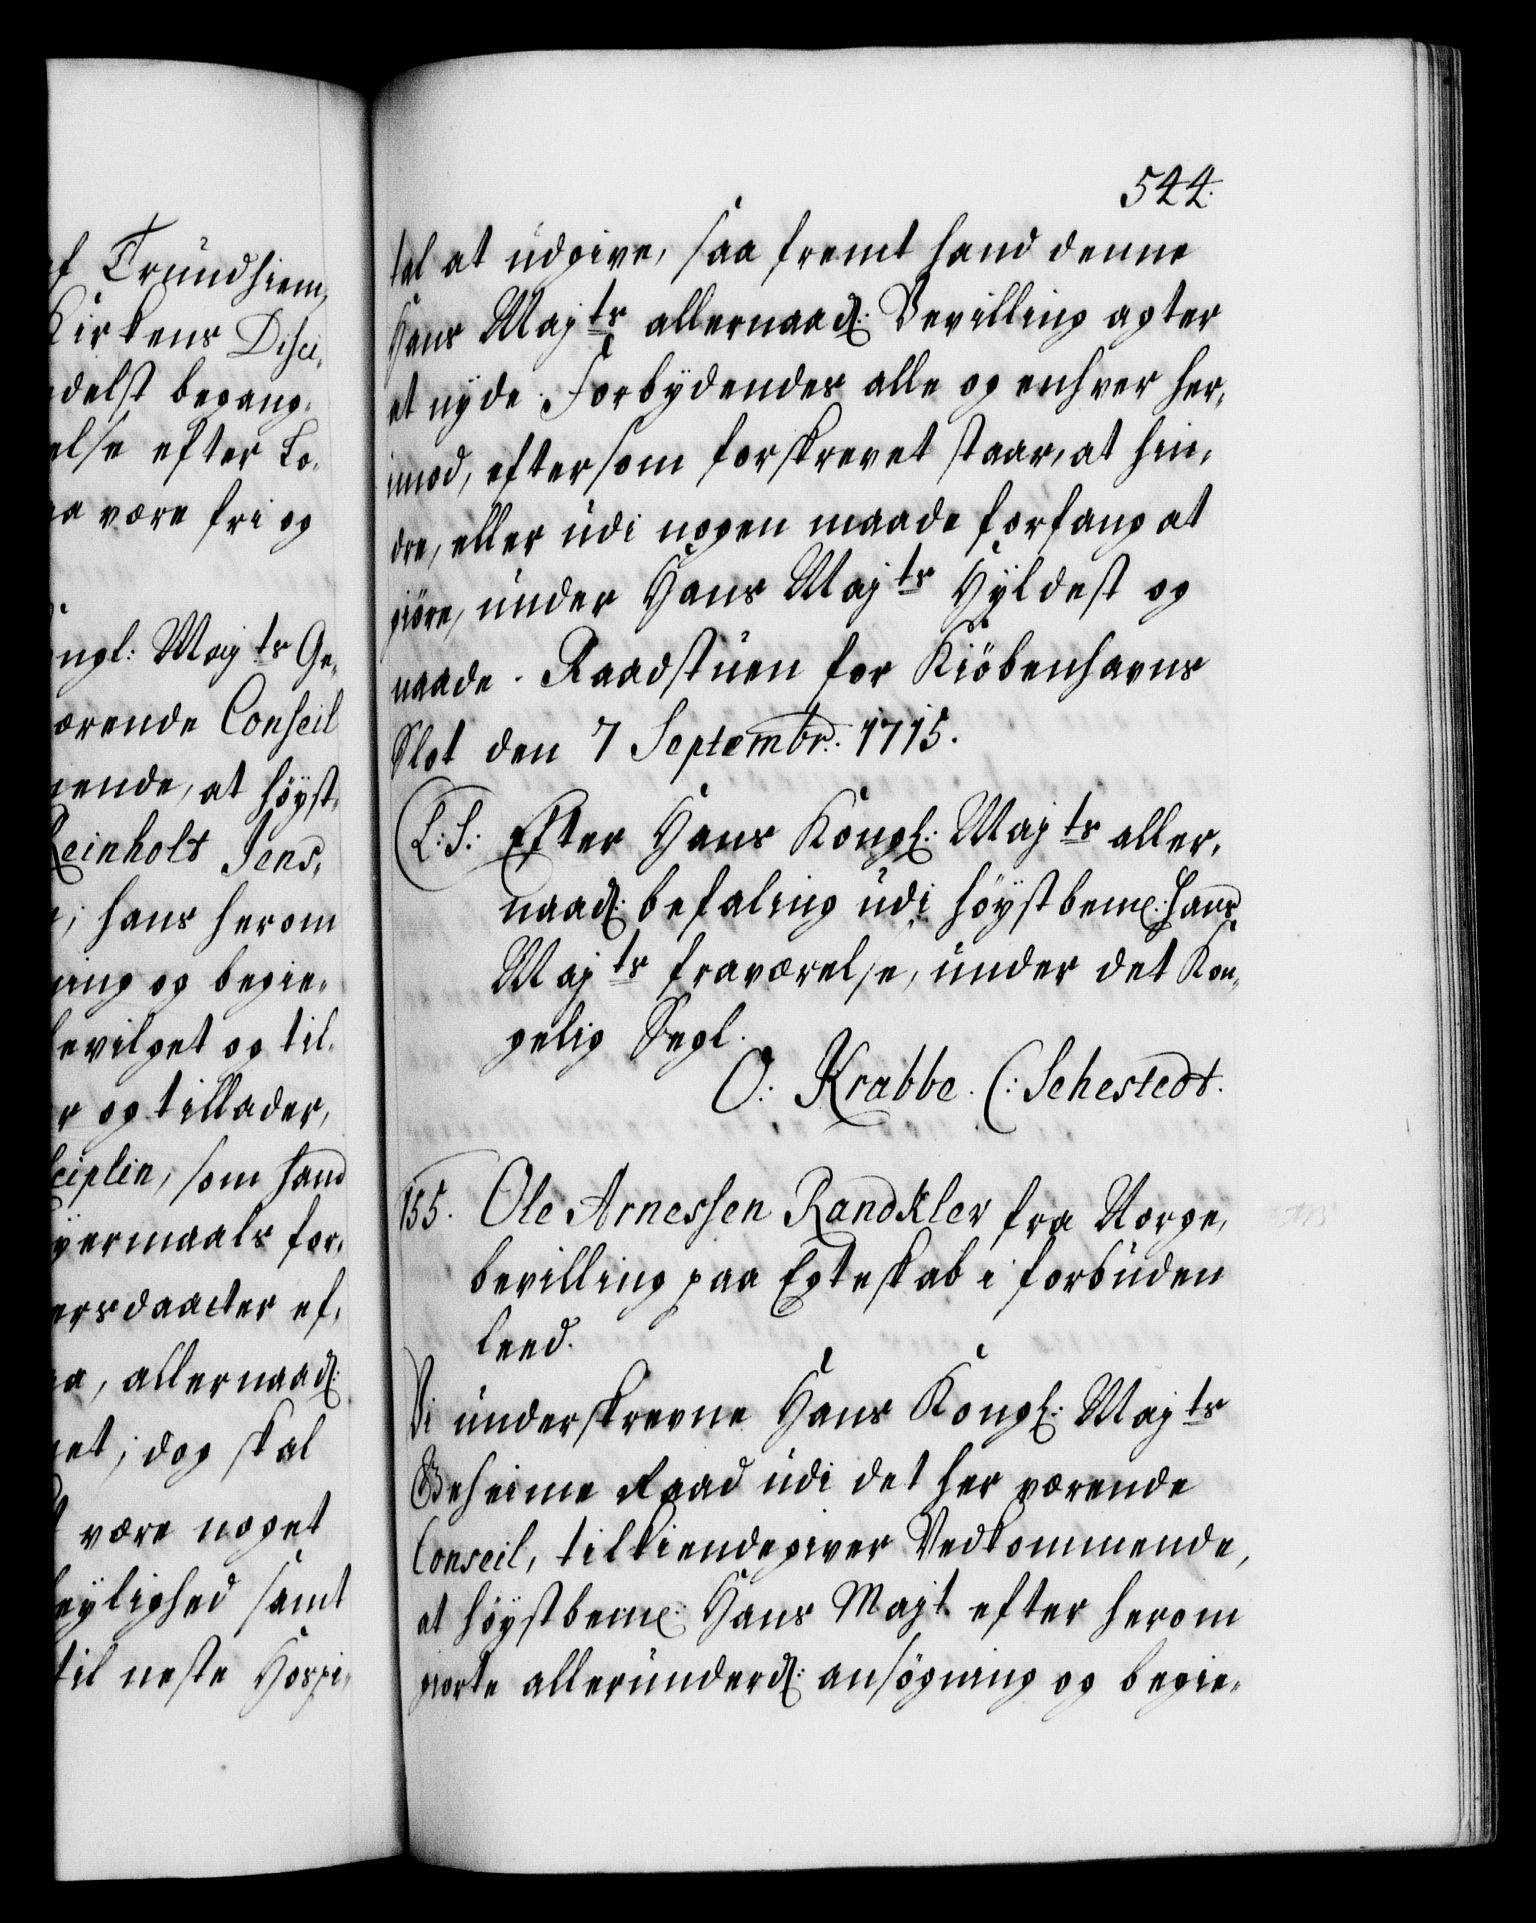 af Trundhiem,
Kirkens Disci,
delst begang,
else efter Lo,
a være fri og
ngl: Majts Ge,
ærende Conseil
iende, at höyst,
Reinholt Jens,
hans herom
ning og begie,
bevilget og til,
r og tillader,
ciplin, som hand
yermaals for,
ersdaatter ef,
a, allernaad:
et; dog skal
være noget
leylighed samt
til neste Hospi,
544.
tal at udgive, saa fremt hand denne
Hans Majts allernaad: Bevilling agter
at nyde. Forbydendes alle og enhver her,
imod, eftersom forskrevet staar, at hin,
dre, eller udi nogen maade forfang at
giöre, under Hans Majts Hyldest og
naade. Raadstuen for Kiöbenhavns
Slot den 7 Septembr: 1715.
(L:S: Efter Hans Kongl: Majts aller,
naad: befaling udi höystbem: Hans
Majts fraværelse, under det Kon,
gelig Segl.
O: Krabbe. C: Sehestedt.
155. Ole Arnessen Randkler fra Norge,
bevilling paa Egteskab i forbuden
leed.
Vi underskrevne Hans Kongl: Majts
Geheime Raad udi det her værende
Conseil, tilkiendegiver Vedkommende,
at höystbem: Hans Majt. efter herom
giorte allerunderd: ansögning og begie,